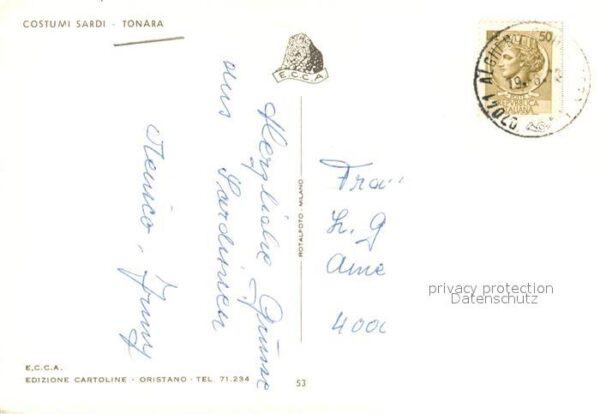 COSTUMI SARDI - TONARA
E.C.C.A.
50
REPVBBLICA
ITALIANA
07041 ALGHERO
Herzliche Grüsse
aus Sardinien
ROTALFOTO - MILANO
Frau
L. G
Ame
4000
privacy protection
Datenschutz
E.C.C.A.
EDIZIONE CARTOLINE - ORISTANO - TEL 71.234
53